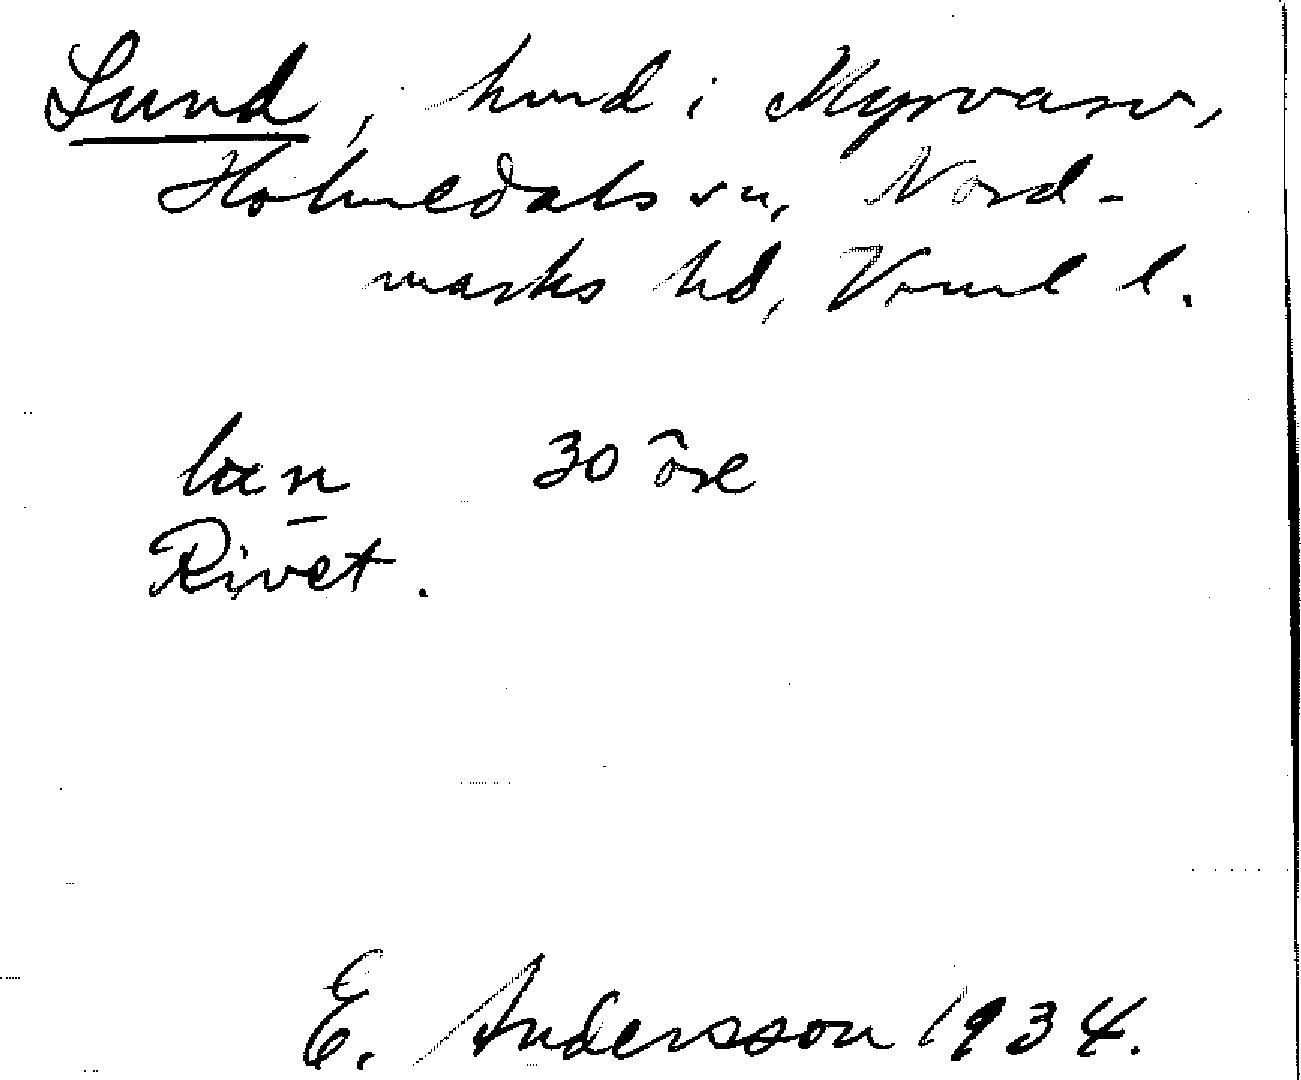 Lund, hmd i Myrvarv,
Holmedals sn, Nord-
marks hd, Vrml l.
læn 30 öre
Rivet.
E. Andersson 1934.